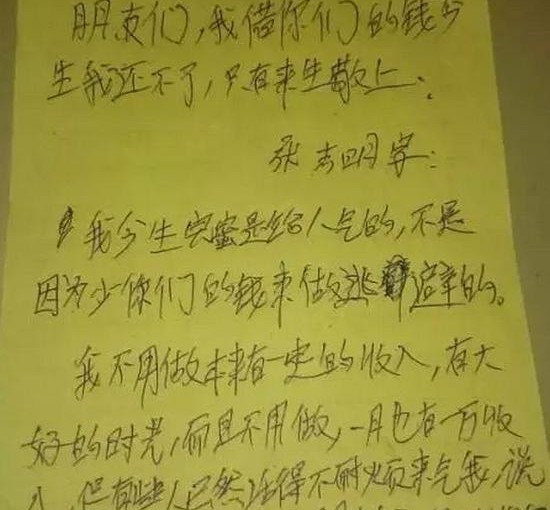 朋友们,我借你们的钱今
生我还不了,只有来生敬上:
张志明字:
我今生完蛋是给人气的,不是
因为少你们的钱来做逃避的。
我不用做本来有一定的收入,有大
好的时光,而且不用做,一月也有一万收
入,但有些人已然活得不耐烦来气我,说